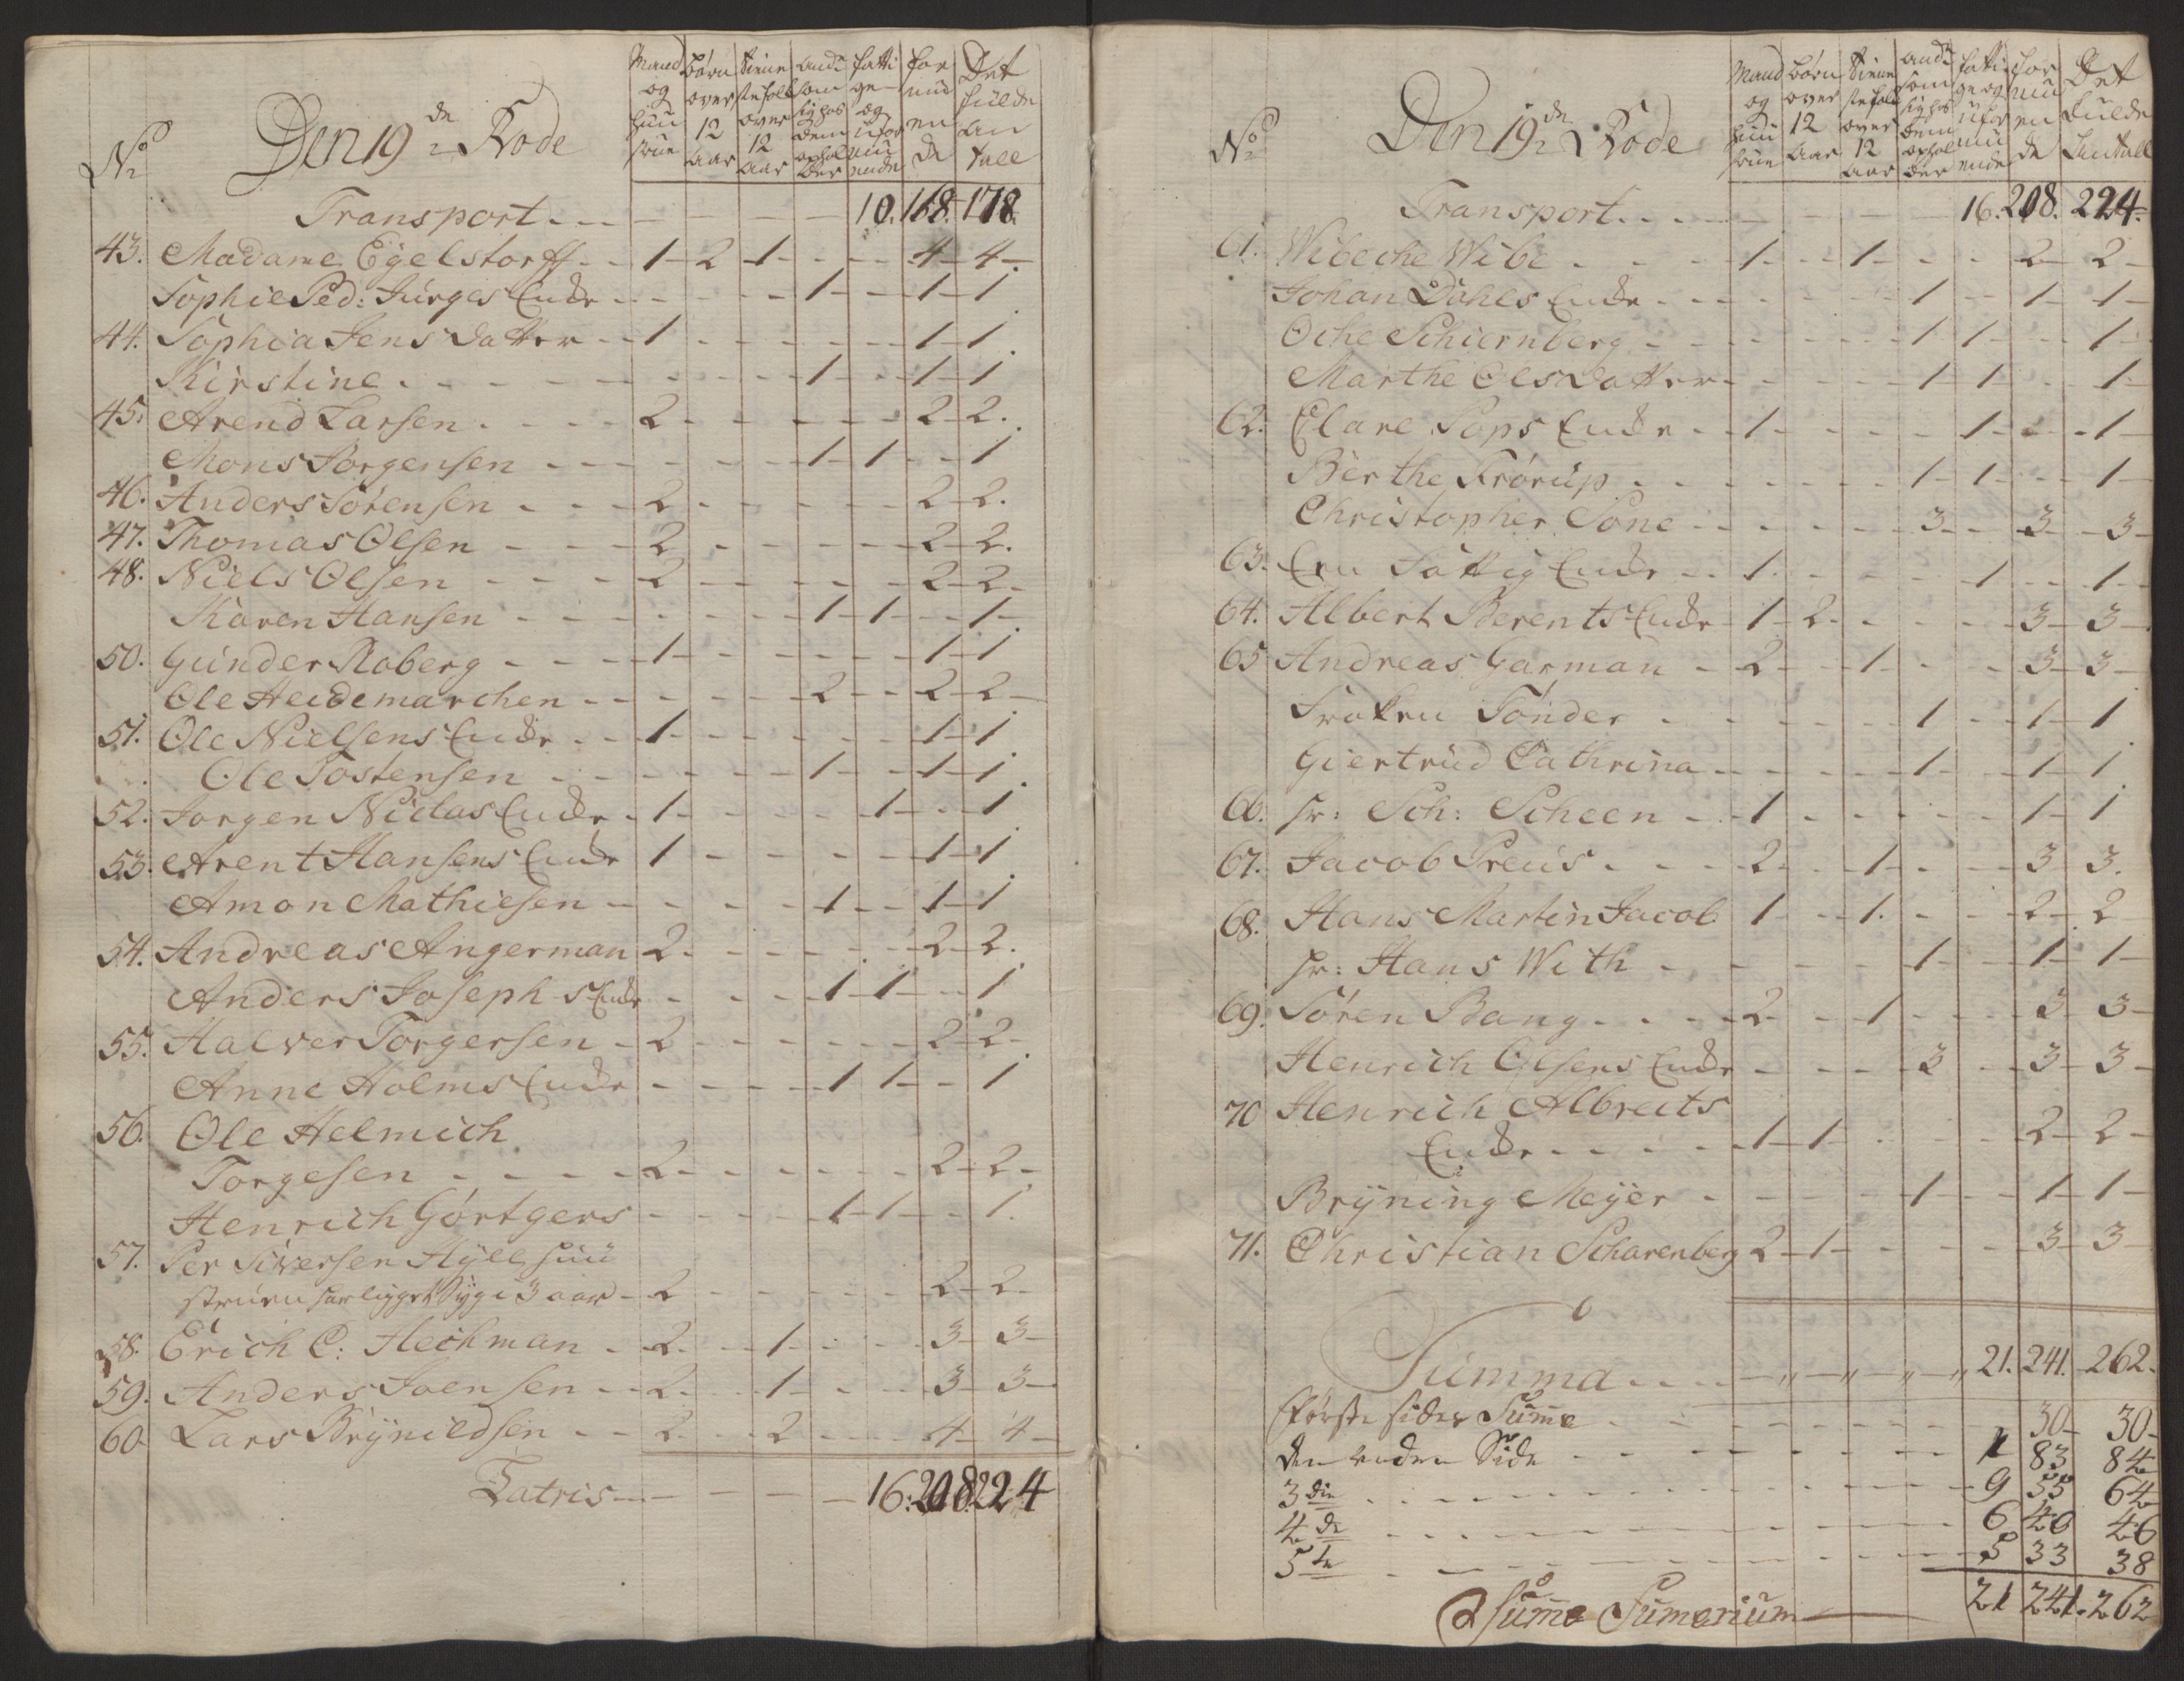 No Den 19de Rode
Mand og Huustrue | Børn over 12 Aar | Tienestefolk over 12 Aar | Andre som sig hos dem opholder | Fattige og uformuende | Formuende | Det fulde Antall
Transport - - - - - 10. 168. 178.
43. Madame Egelstorff - 1 - 2 - 1 - - - 4 - 4 -
Sophie Ped: Jürges Enke - - - 1 - - 1 - 1
44. Sophia Jens datter - 1 - - - - 1 - 1
Kirstine - - - - 1 - - 1 - 1
45. Arend Larsen - 2 - - - - 2 - 2.
Mons Jorgensen - - - 1 - 1 - - 1
46. Anders Sørensen - 2 - - - - 2 - 2.
47. Thomas Olsen - 2 - - - - 2 - 2.
48. Niels Olsen - 2 - - - - 2 - 2 -
Karen Hansen - - - 1 - 1 - - 1 -
50. Günder Roberg - 1 - - - - 1 - 1
Ole Heidemarchen - - - 2 - - 2 - 2 -
51. Ole Nielsens Enke - 1 - - - - 1 - 1
Ole Tostensen - - - 1 - - 1 - 1
52. Jorgen Niclas Enke - 1 - - - 1 - - 1
53. Arent Hansens Enke 1 - - - - 1 - 1
Amon Mathiesen - - - 1 - - 1 - 1
54. Andreas Angerman 2 - - - - 2 - 2.
Anders Josephs Enke - - - 1 - 1 - - 1
55. Halver Torgersen - 2 - - - - 2 - 2 -
Anne Holms Enke - - - 1 1 - - 1
56. Ole Helmich
Torgesen - - - 2 - - - - 2 - 2 -
Henrich Görtgers - - - 1 - 1 - - 1.
57. Per Siversen Hÿll huu
struen har ligget Syg i 3 aar - 2 - - - - 2 - 2 -
58. Erich C: Heckman - 2 - - 1 - - - 3 - 3 -
59. Anders Joensen - 2 - - 1 - - - 3 - 3 -
60 Lars Brÿnildsen - 2 - - 2 - - - 4 - 4 -
Latris - - - - 16. 208. 224
No Den 19de Rode
Mand og Huustrue | Børn over 12 Aar | Tienestefolk over 12 Aar | Andre som sig hos dem opholder | Fattige og uformuende | Formuende | Det fulde Antall
Transport - - - - - 16. 208. 224.
61. Wibeche Wibe - 1 - - 1 - - - 2 - 2 -
Johan Dahls Enke - - - 1 - - 1 - 1 -
Oche Schiernberg - - - 1 1 - - 1 -
Marthe Olsdatter - - - 1 - 1 - - 1 -
62. Clare Pops Enke - 1 - - - 1 - - 1 -
Berthe Frørüp - - - 1 - 1 - - 1 -
Christopher Sone - - - 3 - - 3 - 3 -
63. Een Fattig Enke - 1 - - - 1 - - 1 -
64. Albert Berents Enke 1 - 2 - - - 3 - 3 -
65 Andreas Garman - 2 - - 1 - - - 3 - 3 -
Frøken Tønder - - - 1 - - 1 - 1
Giertrüd Cathrina - - - 1 - - 1 - 1
66. Hr: Sch: Scheen - 1 - - - - 1 - 1
67. Jacob Preüs - 2 - - 1 - - - 3 3.
68. Hans Martin Jacob 1 - - 1 - - - 2 - 2
Hr: Hans With - - - 1 - - 1 - 1 -
69. Søren Bang - 2 - - 1 - - - 3 3 -
Henrich Olsens Enke - - - 3 - - 3 - 3 -
70 Henrich Albreits
Enke - - - 1 - 1 - - - 2 - 2 -
Brÿning Meÿer - - - 1 - - 1 - 1 -
71. Christian Scharenberg 2 - 1 - - - - 3 - 3 -
Summa - - „ - „ - „ - „ 21. 241. 262.
Første sides Sume - - - 30 - 30 -
den anden Side - - - 1 83 84
3die - - - 9 55 64
4de - - - 6 40 46
5te - - - 5 33 38
Sume Sumarium 21 241. 262